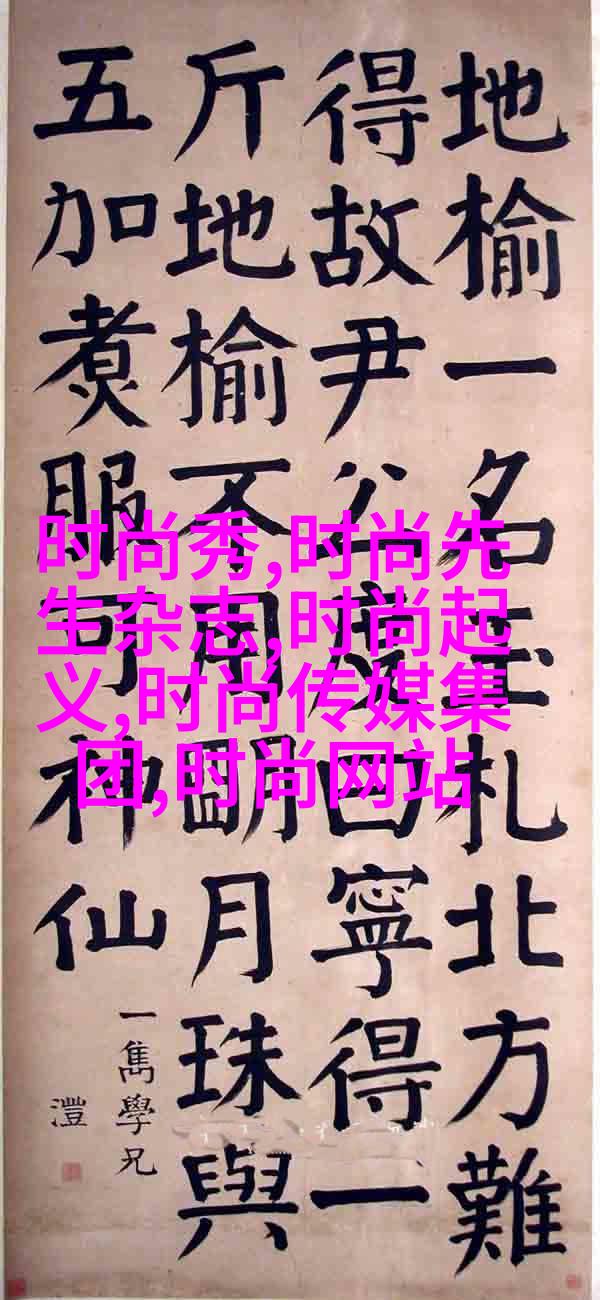 地榆一名玉札北方難
得故尹公度曰寧得一
斤地榆不用朙月珠與
五加煮服可神仙
一雋學兄
澧
时尚秀,时尚先
生杂志,时尚起
义,时尚传媒集
团,时尚网站